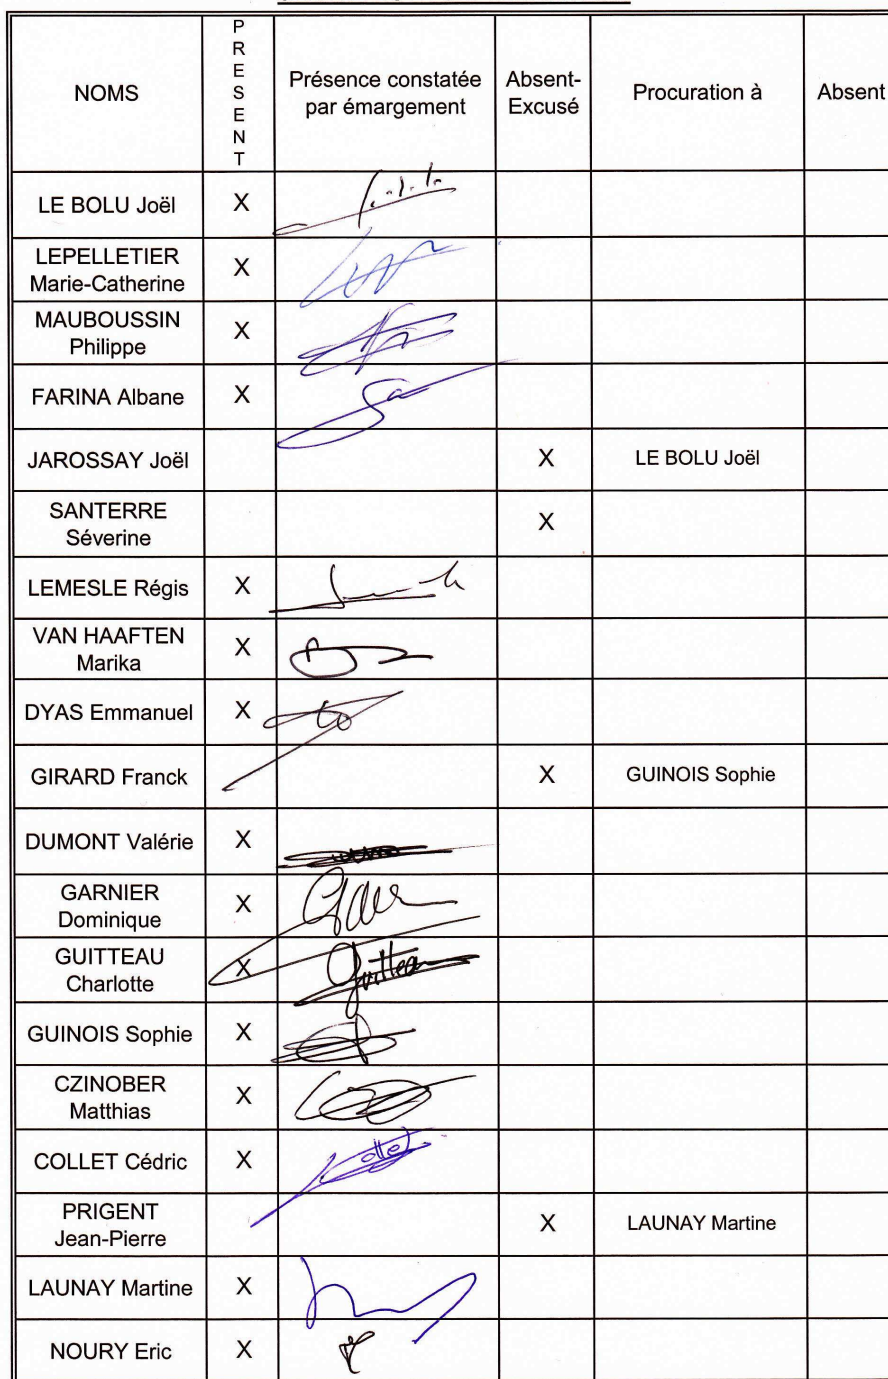 NOMS PRESENT Présence constatée par émargement Absent-Excusé Procuration à Absent
LE BOLU Joël X
LEPELLETIER Marie-Catherine X
MAUBOUSSIN Philippe X
FARINA Albane X
JAROSSAY Joël X LE BOLU Joël
SANTERRE Séverine X
LEMESLE Régis X
VAN HAAFTEN Marika X
DYAS Emmanuel X
GIRARD Franck X GUINOIS Sophie
DUMONT Valérie X
GARNIER Dominique X
GUITTEAU Charlotte X Guitteau
GUINOIS Sophie X
CZINOBER Matthias X
COLLET Cédric X
PRIGENT Jean-Pierre X LAUNAY Martine
LAUNAY Martine X
NOURY Eric X